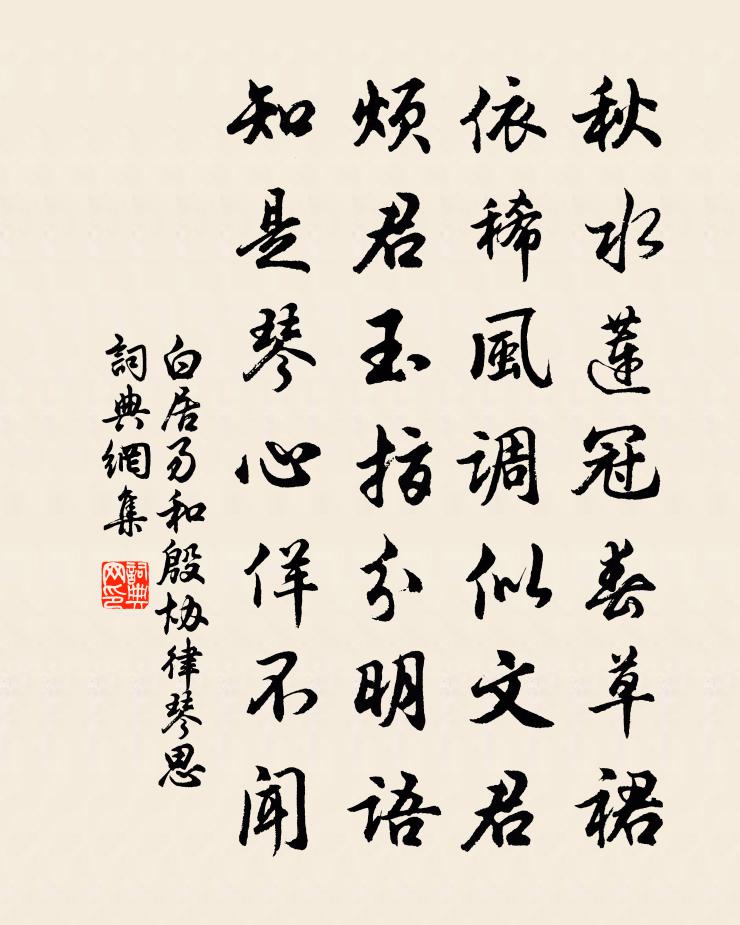 秋水蓮冠春草裙
依稀風调似文君
煩君玉指分明語
知是琴心佯不聞
白居易和殷协律琴思
詞典網集
詞典網印